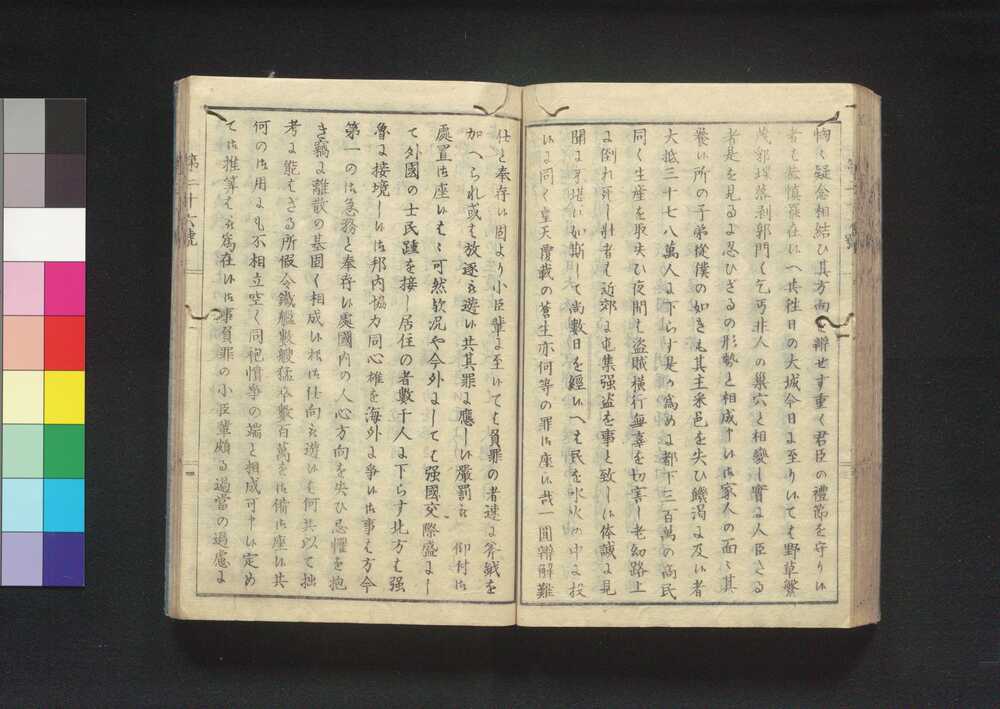 物々疑念相結ひ其方向を辯せす重く君臣の禮節を守りい
者も故慎羅在いへ共往日の大城今日ニ至りいても野草繁
茂郭墎落剥郭門く乞丐非人の巣穴と相變し實ニ人臣たる
者是を見るニ忍ひさるの形勢と相成申いは家人の面ミ其
養い所の子弟從僕の如きも其主釆邑を失ひ饑渇ニ及い者
大抵三十七八萬人ニ下らす是か爲め都下二三百萬の商民
同く生産を取失ひ夜間も盗賊横行無辜を切害し老幼路上
ニ倒れ死し壯者も近郊ニ屯集强盗を事と致しい体誠ニ見
聞ニ不堪い如斯して尚數日を經いへも民を水火の中ニ投
いニ同く皇天覆載の蒼生亦何等の罪ニ座い哉一圓辯解難
仕と奉存い固より小臣輩ニ至いても負罪の者速ニ斧鉞を
加へられ或も放逐被遊い共其罪ニ應しい嚴罰被 仰付は
處置は座いも〻可然欤况や今外ニしても强國交際盛ニし
て外國の士民踵を接し居住の者數千人ニ下らす北方も强
魯ニ接境しいは邦内協力同心雄を海外ニ爭いは事も方今
第一のは急務と奉存い處國内の人心方向を失ひ忌憚を抱
き竊ニ離散の基因く相成い様は仕向被遊いも何共以て拙
考ニ能もさる所假令鐵艦數艘猛卒數百萬をは備は座い共
何のは用ニも不相立空く同袍憤爭の端と相成可申い定め
ては推算も被爲在いは事負罪の小臣輩頗る過當の過慮ニ
第二十六號